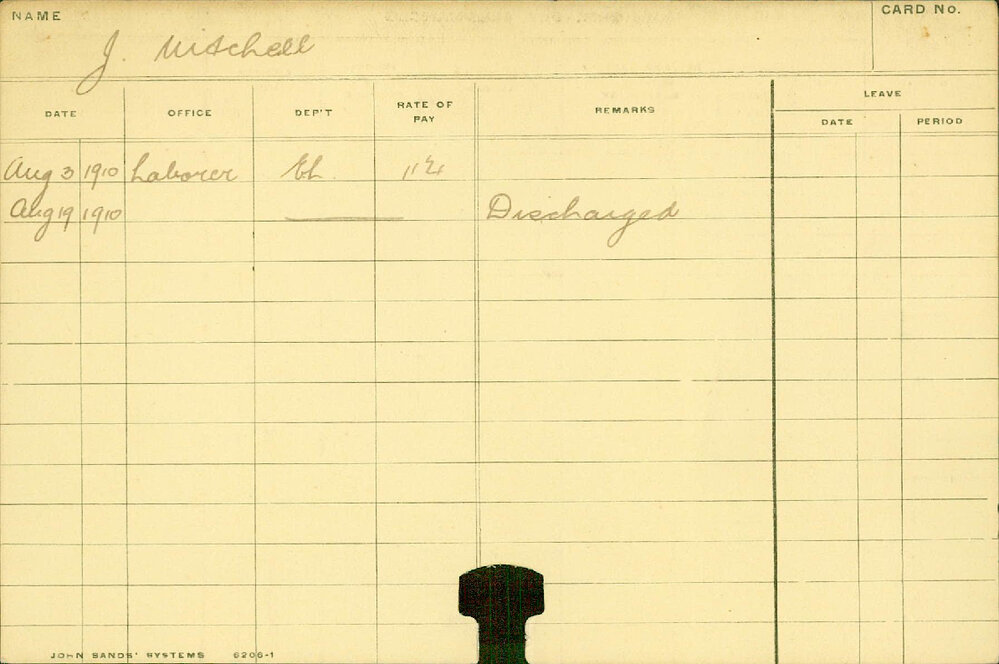 NAME
CARD No.
J. Mitchell
DATE OFFICE DEP'T RATE OF PAY REMARKS LEAVE
DATE PERIOD
Aug 3 1910 Laborer
Aug 19 1910 Discharged
JOHN SANDS' SYSTEMS 6206-1